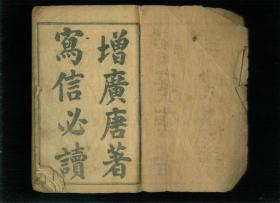 增廣唐著
寫信必讀